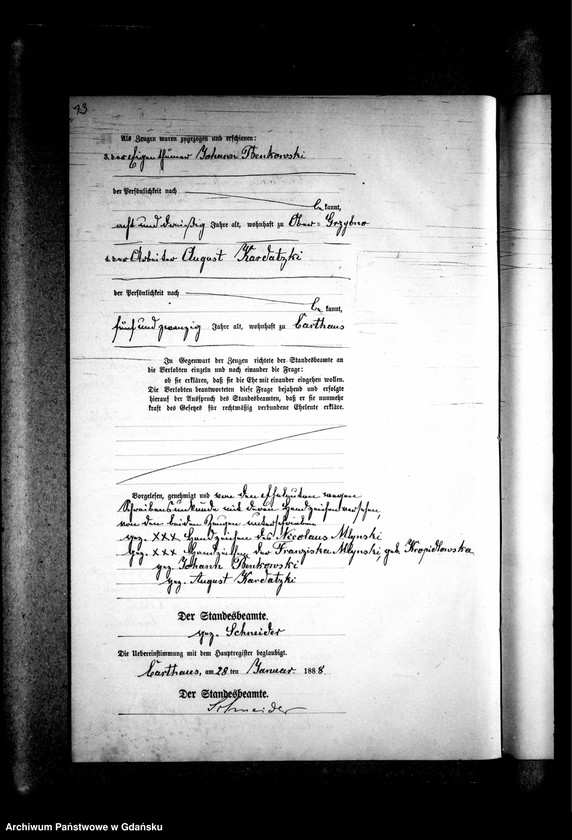 23
Als Zeugen waren zugezogen und erschienen:
3. der Eigenthümer Johann Benkowski
der Persönlichkeit nach
be kannt,
acht und dreißig Jahre alt, wohnhaft zu Ober-Grzybno
4. der Arbeiter August Kardatzki
der Persönlichkeit nach
be kannt,
fünf und zwanzig Jahre alt, wohnhaft zu Carthaus
In Gegenwart der Zeugen richtete der Standesbeamte an
die Verlobten einzeln und nach einander die Frage:
ob sie erklären, daß sie die Ehe mit einander eingehen wollen.
Die Verlobten beantworteten diese Frage bejahend und erfolgte
hierauf der Ausspruch des Standesbeamten, daß er sie nunmehr
kraft des Gesetzes für rechtmäßig verbundene Eheleute erkläre.
Vorgelesen, genehmigt und von den Eheleuten wegen
Schreibensunkunde mit deren Handzeichen versehen,
von den beiden Zeugen unterschrieben
gez. XXX Handzeichen des Nicolaus Mlynski
gez. XXX Handzeichen der Franziska Mlynski, geb. Kropidlowska
gez. Johann Benkowski
gez. August Kardatzki
Der Standesbeamte.
gez. Schneider
Die Uebereinstimmung mit dem Hauptregister beglaubigt.
Carthaus, am 28 ten Januar 1888.
Der Standesbeamte.
Schneider
Archiwum Państwowe w Gdańsku